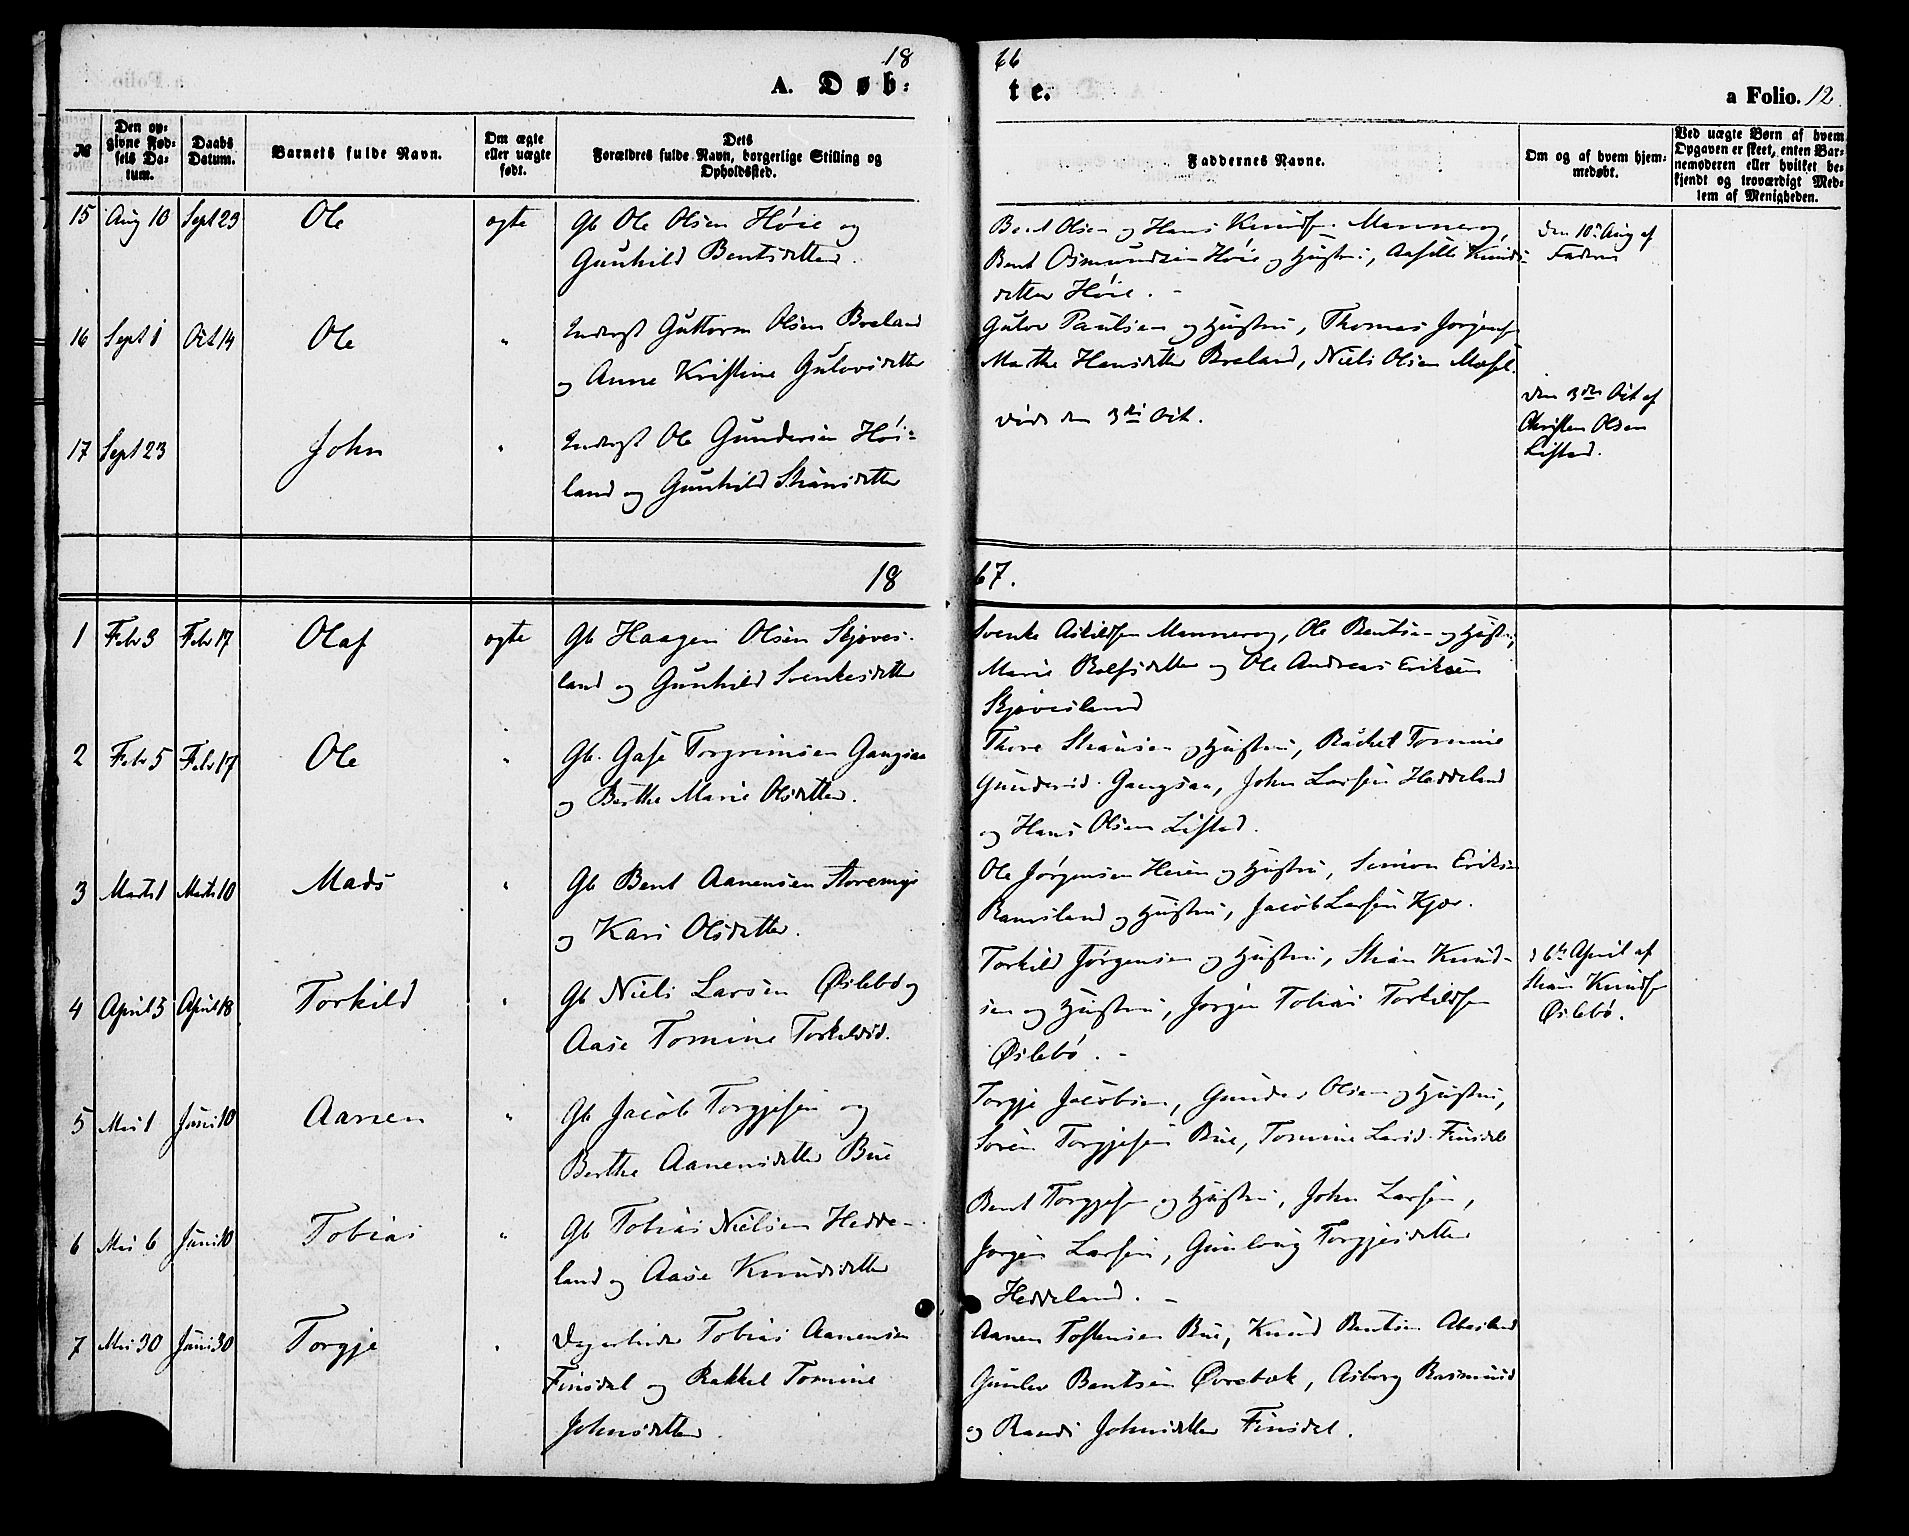 18 66
A. Døb: te.
a Folio. 12.
№
Den op-
givne Fød-
sels Da-
tum.
Daabs
Datum.
Barnets fulde Navn.
Om ægte
eller uægte
født.
Dets
Forældres fulde Navn, borgerlige Stilling og
Opholdssted.
Faddernes Navne.
Om og af hvem hjem-
medøbt.
Ved uægte Børn af hvem
Opgaven er skeet, enten Bar-
nemoderen eller hvilket be-
kjendt og troværdigt Med-
lem af Menigheden.
15 Aug 10 Sept 23 Ole ægte Gb Ole Olsen Høie og
Gunhild Bentsdatter.
Bent Olsen og Hans Knudsen Mannerog,
Bent Osmundsen Høie og Hustru, Aasille Knuds-
datter Høie. -
den 10de Aug af
Faderen
16 Sept 1 Oct 14 Ole " Inderst Guttorm Olsen Breland
og Anne Kristine Gulovsdatter
Gulov Paulsen og Hustru, Thomas Jørgensen
Marthe Hansdatter Breland, Niels Olsen
17 Sept 23 John " Inderst Ole Gundersen Høi-
land og Gunhild Stiansdatter
døde den 3die Oct.
den 3die Oct af
Christen Olsen
Liestad.
18 67.
1 Febr 3 Febr 17 Olaf ægte Gb Haagen Olsen Skjeves-
land og Gunhild Svenkesdatter
Svenke Askildsen Mannerog, Ole Bentsen og Hustru,
Marie Rolfsdatter og Ole Andreas Eriksen
Skjevesland
2 Febr 5 Febr 17 Ole " Gb. Gase Torgrimsen Gangsaa
og Berthe Marie Olsdatter.
Thore Stiansen og Hustru, Rachel Tomine
Gundersd. Gangsaa, John Larsen Heddeland
og Hans Olsen Liestad.
3 Marts 1 Marts 10 Mads " Gb Bent Aanensen Storemyr
og Kari Olsdatter.
Ole Jørgensen Heien og Hustru, Simon Eriksen
Ramsland og Hustru, Jacob Larsen Kjær.
4 April 5 April 18 Torkild " Gb Niels Larsen Øslebø og
Aase Tomine Torkildsd.
Torkild Jørgensen og Hustru, Stian Knud-
sen og Hustru, Jørgen Tobias Torkildsen
Øslebø. -
d 6te April af
Stian Knudsen
Øslebø.
5 Mai 1 Juni 10 Aanen " Gb Jacob Torgjesen og
Berthe Aanensdatter Bue
Torgje Jacobsen, Gunder Olsen og Hustru,
Søren Torgjesen Bue, Tomine Larsd. Finsdal
6 Mai 6 Juni 10 Tobias " Gb Tobias Nielsen Hedde-
land og Aase Knudsdatter
Bent Torgjesen og Hustru, John Larsen,
Jørgen Larsen, Gunlaug Torgjesdatter
Heddeland. -
7 Mai 30 Juni 30 Torgje " Dagarbeider Tobias Aanensen
Finsdal og Rakkel Tomine
Johnsdatter.
Aanen Tostensen Bue, Knud Bentsen Abesland
Gunlev Bentsen Øvrebøk, Asborg Rasmusd
og Randi Johnsdatter Finsdal.